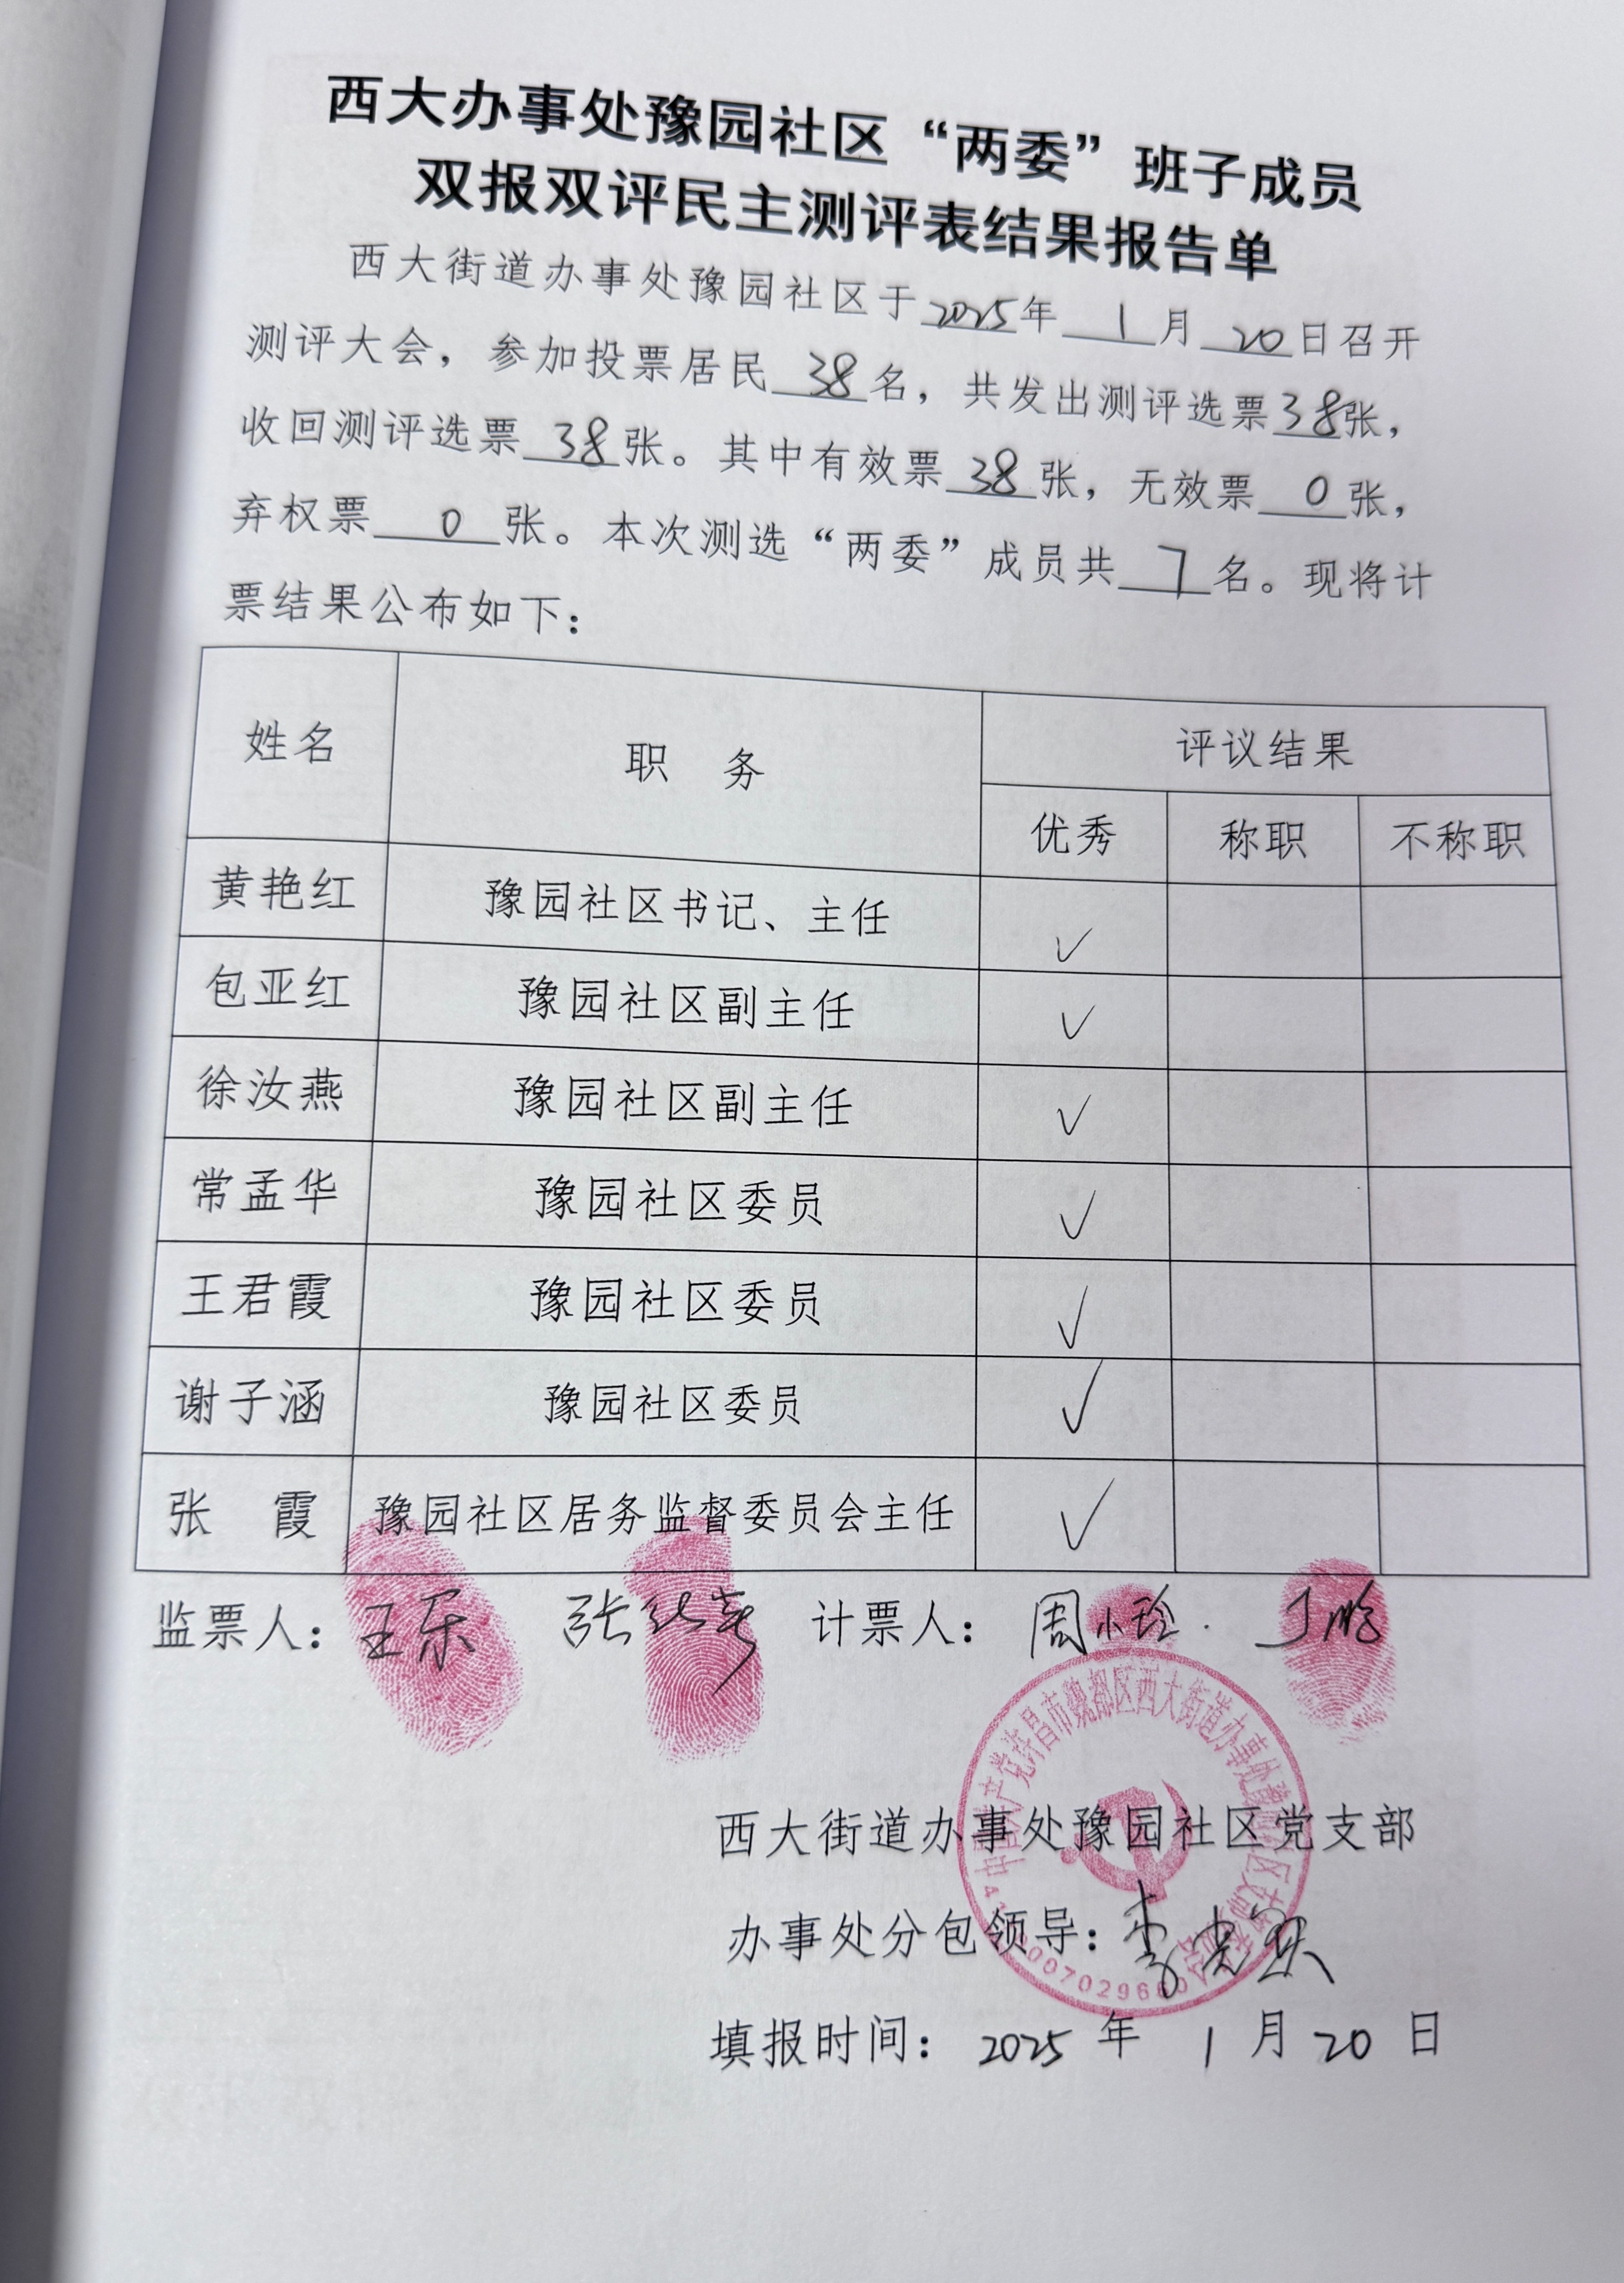 西大办事处豫园社区“两委”班子成员
双报双评民主测评表结果报告单
西大街道办事处豫园社区于2025年1月20日召开
测评大会，参加投票居民38名，共发出测评选票38张，
收回测评选票38张。其中有效票38张，无效票0张，
弃权票0张。本次测选“两委”成员共7名。现将计
票结果公布如下：
姓名 职 务 评议结果
优秀 称职 不称职
黄艳红 豫园社区书记、主任 ✓
包亚红 豫园社区副主任 ✓
徐汝燕 豫园社区副主任 ✓
常孟华 豫园社区委员 ✓
王君霞 豫园社区委员 ✓
谢子涵 豫园社区委员 ✓
张 霞 豫园社区居务监督委员会主任 ✓
监票人：王乐 张 计票人：周小玲. 丁鹏
中国共产党许昌市魏都区西大街道办事处豫园社区支部委员会
西大街道办事处豫园社区党支部
办事处分包领导：李
填报时间：2025年1月20日